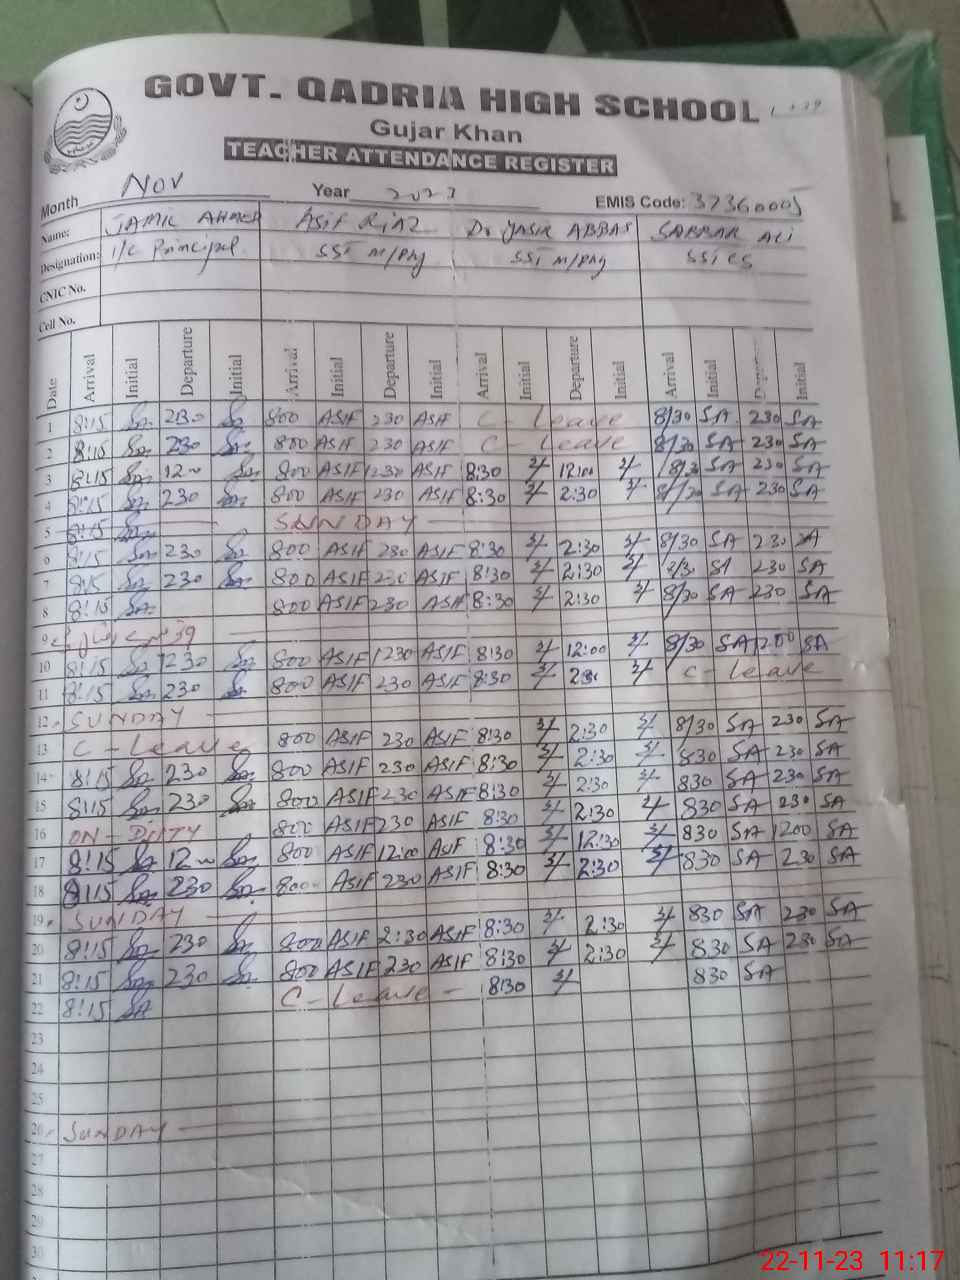 GOVT. QADRIA HIGH SCHOOL
Gujar Khan
TEACHER ATTENDANCE REGISTER
Month Nov Year 2023 EMIS Code: 37360005
Name: JAMIL AHMED ASIF RIAZ Dr YASIR ABBAS SABBAR ALI
Designation: I/C Principal SST M/Phy SST M/Phy SST CS
CNIC No.
Cell No.
Date Arrival Initial Departure Initial Arrival Initial Departure Initial Arrival Initial Departure Initial Arrival Initial Initial
1 8:15 230 800 ASIF 230 ASIF C - Leave 8/30 SA 230 SA
2 8:15 230 800 ASIF 230 ASIF C - Leave 8/30 SA 230 SA
3 8:15 12 800 ASIF 1230 ASIF 8:30 12:00 8/30 SA 230 SA
4 8:15 230 800 ASIF 230 ASIF 8:30 2:30 8/30 SA 230 SA
5 8:15 SUNDAY
6 8:15 230 800 ASIF 230 ASIF 8:30 2:30 8/30 SA 230 SA
7 8:15 230 800 ASIF 230 ASIF 8:30 2:30 8/30 SA 230 SA
8 8:15 800 ASIF 230 ASIF 8:30 2:30 8/30 SA 230 SA
9
10 8:15 1230 800 ASIF 1230 ASIF 8:30 12:00 8/30 SA 1200 SA
11 8:15 230 800 ASIF 230 ASIF 8:30 230 C - Leave
12 SUNDAY
13 C - Leave 800 ASIF 230 ASIF 8:30 2:30 8/30 SA 230 SA
14 8:15 230 800 ASIF 230 ASIF 8:30 2:30 830 SA 230 SA
15 8:15 230 800 ASIF 230 ASIF 8:30 2:30 830 SA 230 SA
16 ON - DUTY 800 ASIF 230 ASIF 8:30 2:30 830 SA 230 SA
17 8:15 12 800 ASIF 12:00 ASIF 8:30 12:30 830 SA 1200 SA
18 8:15 230 800 ASIF 230 ASIF 8:30 2:30 830 SA 230 SA
19 SUNDAY
20 8:15 230 800 ASIF 2:30 ASIF 8:30 2:30 830 SA 230 SA
21 8:15 230 800 ASIF 230 ASIF 8:30 2:30 830 SA 230 SA
22 8:15 SA C - Leave - 8:30 830 SA
23
24
25
26 SUNDAY
27
28
29
30
22-11-23 11:17